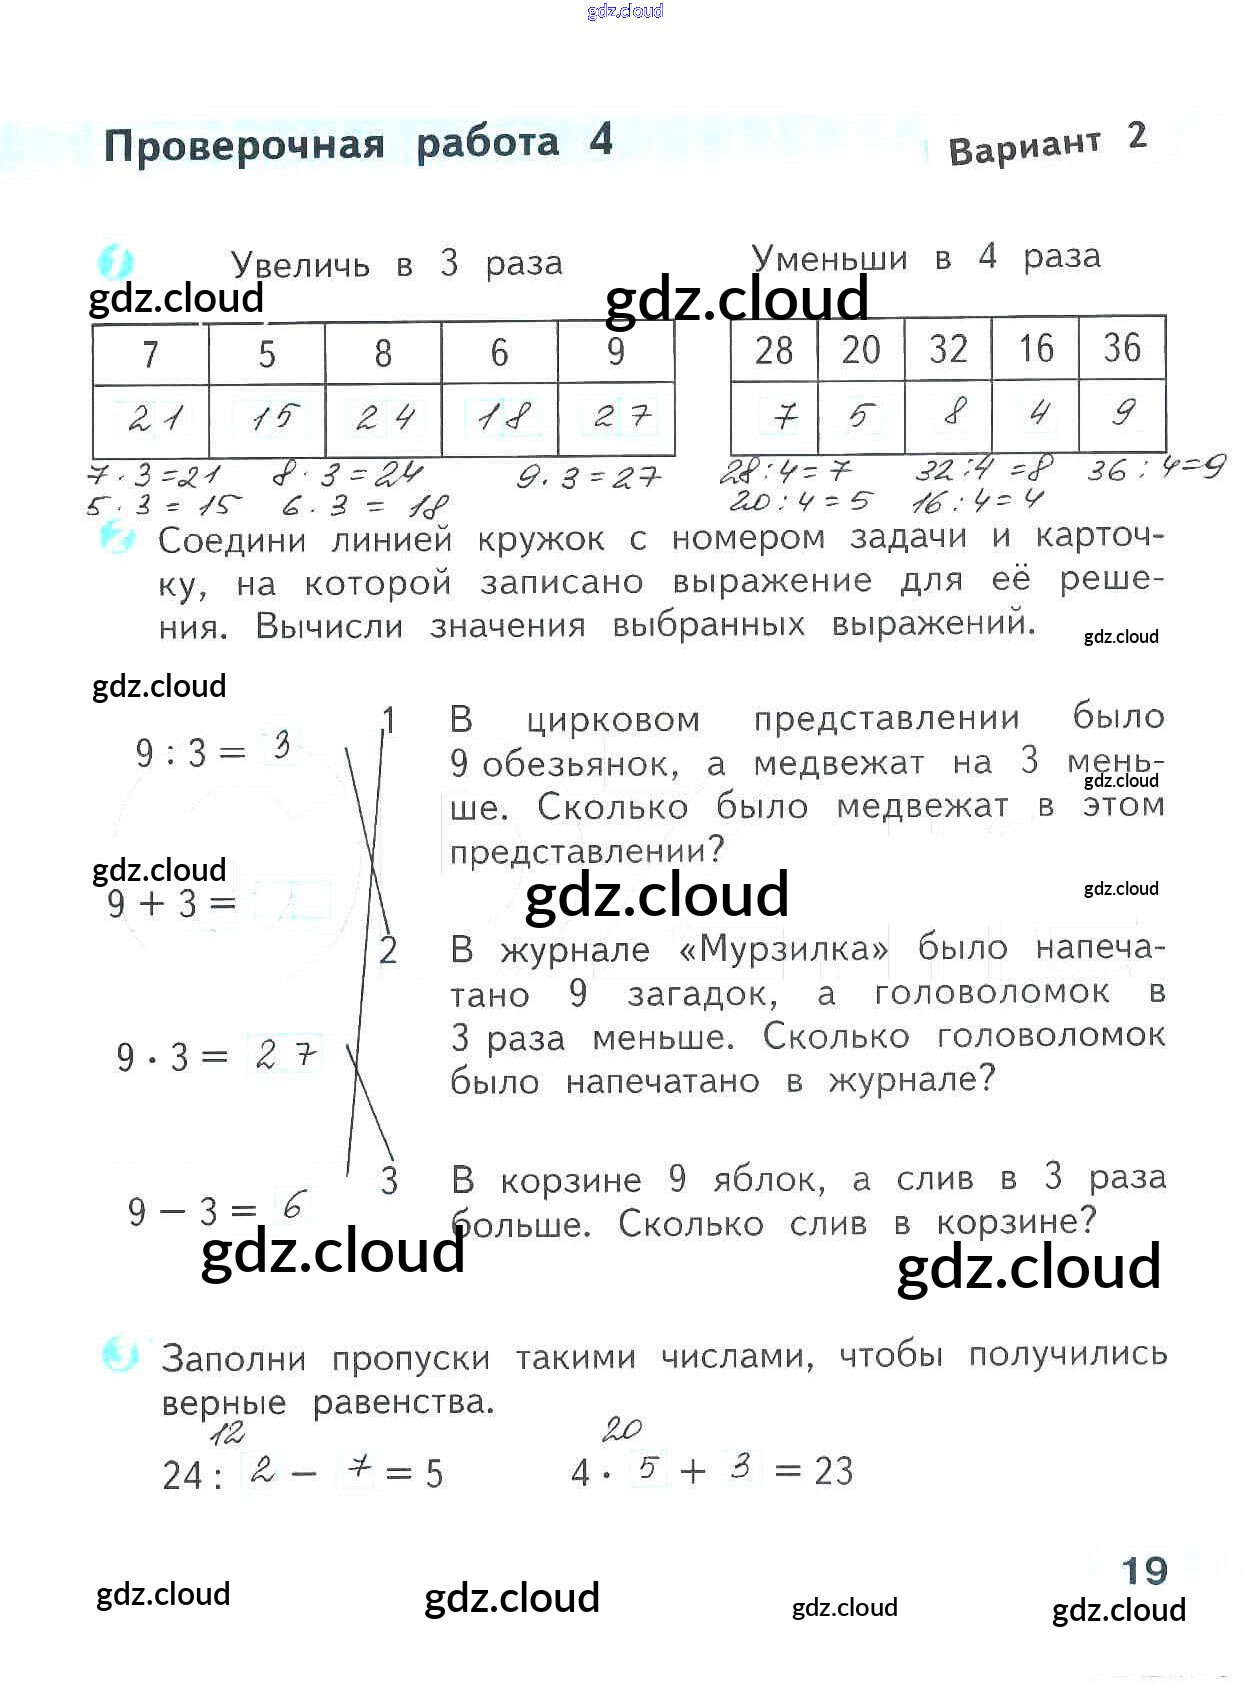 gdz.cloud
Проверочная работа 4
Вариант 2
1 Увеличь в 3 раза
Уменьши в 4 раза
gdz.cloud gdz.cloud
7 5 8 6 9
21 15 24 18 27
28 20 32 16 36
7 5 8 4 9
7 · 3 = 21 8 · 3 = 24 9 · 3 = 27
5 · 3 = 15 6 · 3 = 18
28 : 4 = 7 32 : 4 = 8 36 : 4 = 9
20 : 4 = 5 16 : 4 = 4
2 Соедини линией кружок с номером задачи и карточ-
ку, на которой записано выражение для её реше-
ния. Вычисли значения выбранных выражений.
gdz.cloud
gdz.cloud
9 : 3 = 3
9 + 3 =
9 · 3 = 27
9 − 3 = 6
1 В цирковом представлении было
9 обезьянок, а медвежат на 3 мень-
ше. Сколько было медвежат в этом
представлении?
gdz.cloud
gdz.cloud
gdz.cloud
gdz.cloud
2 В журнале «Мурзилка» было напеча-
тано 9 загадок, а головоломок в
3 раза меньше. Сколько головоломок
было напечатано в журнале?
3 В корзине 9 яблок, а слив в 3 раза
больше. Сколько слив в корзине?
gdz.cloud gdz.cloud
3 Заполни пропуски такими числами, чтобы получились
верные равенства.
12 20
24 : 2 − 7 = 5 4 · 5 + 3 = 23
19
gdz.cloud gdz.cloud gdz.cloud gdz.cloud